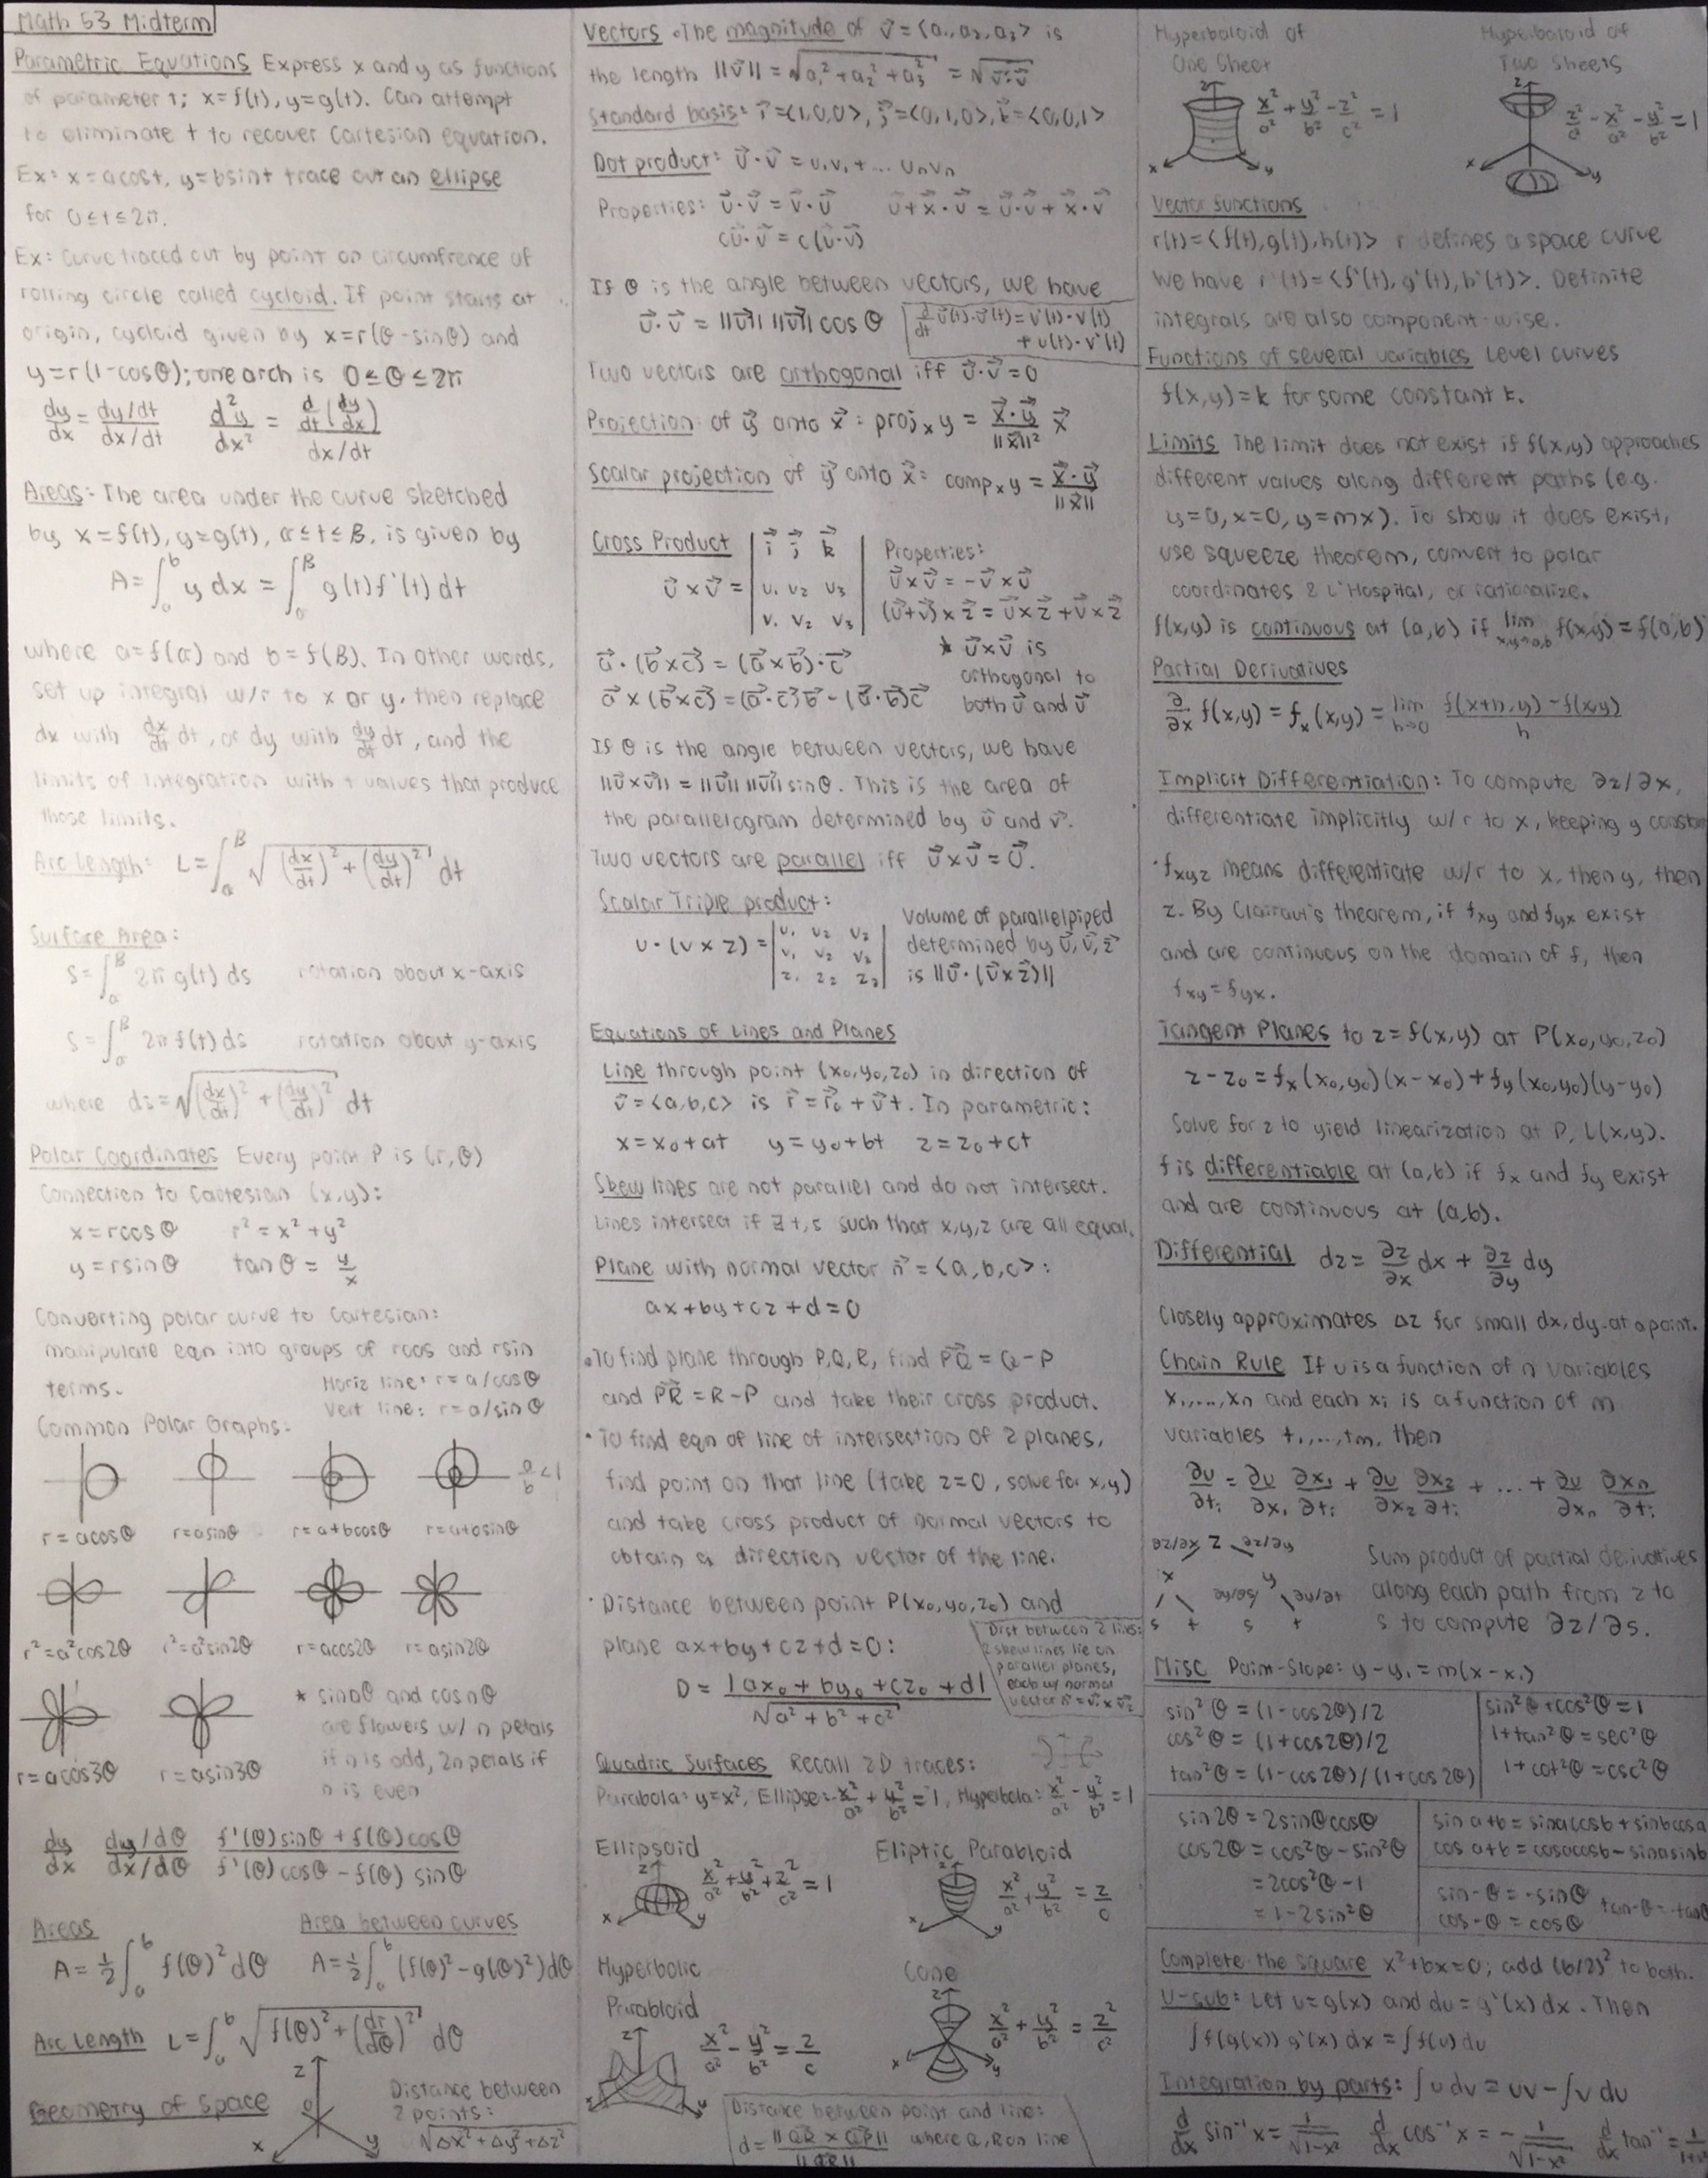 Math 53 Midterm
Parametric Equations Express x and y as functions
of parameter t; x=f(t), y=g(t). Can attempt
to eliminate t to recover Cartesian equation.
Ex: x=acost, y=bsint trace out an ellipse
for 0≤t≤2π.
Ex: Curve traced out by point on circumfrence of
rolling circle called cycloid. If point starts at
origin, cycloid given by x=r(θ-sinθ) and
y=r(1-cosθ); one arch is 0≤θ≤2π
dy/dx = (dy/dt)/(dx/dt)   d²y/dx² = (d/dt(dy/dx))/(dx/dt)
Areas: The area under the curve sketched
by x=f(t), y=g(t), α≤t≤β, is given by
A=∫_a^b y dx = ∫_α^β g(t)f'(t)dt
where a=f(α) and b=f(β). In other words,
set up integral w/r to x or y, then replace
dx with dx/dt dt, or dy with dy/dt dt, and the
limits of integration with t values that produce
those limits.
Arc Length: L=∫_α^β √((dx/dt)²+(dy/dt)²) dt
Surface Area:
S=∫_α^β 2π g(t) ds   rotation about x-axis
S=∫_α^β 2π f(t) ds   rotation about y-axis
where ds=√((dx/dt)²+(dy/dt)²) dt
Polar Coordinates Every point P is (r,θ)
Connection to Cartesian (x,y):
x=rcosθ   r²=x²+y²
y=rsinθ   tanθ=y/x
Converting polar curve to Cartesian:
manipulate eqn into groups of rcos and rsin
terms.   Horiz line: r=a/cosθ
Vert line: r=a/sinθ
Common Polar Graphs:
a/b<1
r=acosθ   r=asinθ   r=a+bcosθ   r=a+bsinθ
r²=a²cos2θ   r²=a²sin2θ   r=acos2θ   r=asin2θ
* sinnθ and cosnθ
are flowers w/ n petals
if n is odd, 2n petals if
n is even
r=acos3θ   r=asin3θ
dy/dx   (dy/dθ)/(dx/dθ)   (f'(θ)sinθ+f(θ)cosθ)/(f'(θ)cosθ-f(θ)sinθ)
Areas   Area between curves
A=½∫_a^b f(θ)²dθ   A=½∫_a^b (f(θ)²-g(θ)²)dθ
Arc Length L=∫_a^b √(f(θ)²+(dr/dθ)²) dθ
Geometry of Space   z 0 x y
Distance between
2 points:
√(Δx²+Δy²+Δz²)
Vectors • The magnitude of v⃗=<a₁,a₂,a₃> is
the length ||v⃗||=√(a₁²+a₂²+a₃²)=√(v⃗·v⃗)
Standard basis: i⃗=<1,0,0>, j⃗=<0,1,0>, k⃗=<0,0,1>
Dot product: u⃗·v⃗=u₁v₁+...uₙvₙ
Properties: u⃗·v⃗=v⃗·u⃗   u⃗+x⃗·v⃗=u⃗·v⃗+x⃗·v⃗
cu⃗·v⃗=c(u⃗·v⃗)
If θ is the angle between vectors, we have
u⃗·v⃗=||u⃗|| ||v⃗|| cosθ
d/dt u⃗(t)·v⃗(t)=u'(t)·v(t)
+u(t)·v'(t)
Two vectors are orthogonal iff u⃗·v⃗=0
Projection of y⃗ onto x⃗: projₓy = (x⃗·y⃗)/||x⃗||² x⃗
Scalar projection of y⃗ onto x⃗: compₓy = (x⃗·y⃗)/||x⃗||
Cross Product   Properties:
u⃗×v⃗ = |i⃗ j⃗ k⃗|
|u₁ u₂ u₃|
|v₁ v₂ v₃|
u⃗×v⃗=-v⃗×u⃗
(u⃗+v⃗)×z⃗=u⃗×z⃗+v⃗×z⃗
* u⃗×v⃗ is
orthogonal to
both u⃗ and v⃗
a⃗·(b⃗×c⃗)=(a⃗×b⃗)·c⃗
a⃗×(b⃗×c⃗)=(a⃗·c⃗)b⃗-(a⃗·b⃗)c⃗
If θ is the angle between vectors, we have
||u⃗×v⃗||=||u⃗|| ||v⃗|| sinθ. This is the area of
the parallelogram determined by u⃗ and v⃗.
Two vectors are parallel iff u⃗×v⃗=0⃗.
Scalar Triple product:
u·(v×z)=|u₁ u₂ u₃|
|v₁ v₂ v₃|
|z₁ z₂ z₃|
Volume of parallelpiped
determined by u⃗,v⃗,z⃗
is ||u⃗·(v⃗×z⃗)||
Equations of Lines and Planes
Line through point (x₀,y₀,z₀) in direction of
v⃗=<a,b,c> is r⃗=r⃗₀+v⃗t. In parametric:
x=x₀+at   y=y₀+bt   z=z₀+ct
Skew lines are not parallel and do not intersect.
Lines intersect if ∃ t,s such that x,y,z are all equal.
Plane with normal vector n⃗=<a,b,c>:
ax+by+cz+d=0
• To find plane through P,Q,R, find PQ⃗=Q-P
and PR⃗=R-P and take their cross product.
• To find eqn of line of intersection of 2 planes,
find point on that line (take z=0, solve for x,y)
and take cross product of normal vectors to
obtain a direction vector of the line.
• Distance between point P(x₀,y₀,z₀) and
plane ax+by+cz+d=0:
D=|ax₀+by₀+cz₀+d|/√(a²+b²+c²)
Dist between 2 lines:
2 skew lines lie on
parallel planes,
each w/ normal
vector n⃗=v⃗₁×v⃗₂
Quadric Surfaces Recall 2D traces:
Parabola: y=x², Ellipse: x²/a²+y²/b²=1, Hyperbola: x²/a²-y²/b²=1
Ellipsoid   x²/a²+y²/b²+z²/c²=1
Eliptic Parabloid   x²/a²+y²/b²=z/c
Hyperbolic
Parabloid   x²/a²-y²/b²=z/c
Cone   x²/a²+y²/b²=z²/c²
Distance between point and line:
d=||QR⃗×QP⃗||/||QR|| where Q,R on line
Hyperboloid of
One Sheet
x²/a²+y²/b²-z²/c²=1
Hyperboloid of
Two Sheets
z²/c²-x²/a²-y²/b²=1
Vector Functions
r(t)=<f(t),g(t),h(t)> r defines a space curve
We have r'(t)=<f'(t),g'(t),h'(t)>. Definite
integrals are also component-wise.
Functions of several variables Level curves
f(x,y)=k for some constant k.
Limits The limit does not exist if f(x,y) approaches
different values along different paths (e.g.
y=0, x=0, y=mx). To show it does exist,
use squeeze theorem, convert to polar
coordinates & L'Hospital, or rationalize.
f(x,y) is continuous at (a,b) if lim x,y→a,b f(x,y)=f(a,b)
Partial Derivatives
∂/∂x f(x,y)=fₓ(x,y)=lim h→0 (f(x+h,y)-f(x,y))/h
Implicit Differentiation: To compute ∂z/∂x,
differentiate implicitly w/r to x, keeping y constan
• f_xyz means differentiate w/r to x, then y, then
z. By Clairaut's theorem, if f_xy and f_yx exist
and are continuous on the domain of f, then
f_xy=f_yx.
Tangent Planes to z=f(x,y) at P(x₀,y₀,z₀)
z-z₀=fₓ(x₀,y₀)(x-x₀)+f_y(x₀,y₀)(y-y₀)
Solve for z to yield linearization at P, L(x,y).
f is differentiable at (a,b) if fₓ and f_y exist
and are continuous at (a,b).
Differential dz=∂z/∂x dx+∂z/∂y dy
Closely approximates Δz for small dx,dy at a point.
Chain Rule If u is a function of n variables
x₁,...,xₙ and each xᵢ is a function of m
variables t₁,...,tm, then
∂u/∂tᵢ=∂u/∂x₁ ∂x₁/∂tᵢ+∂u/∂x₂ ∂x₂/∂tᵢ+...+∂u/∂xₙ ∂xₙ/∂tᵢ
∂z/∂x z ∂z/∂y
x y
∂y/∂s ∂y/∂t
s t s t
Sum product of partial derivatives
along each path from z to
s to compute ∂z/∂s.
Misc Point-Slope: y-y₁=m(x-x₁)
sin²θ=(1-cos2θ)/2
cos²θ=(1+cos2θ)/2
tan²θ=(1-cos2θ)/(1+cos2θ)
sin²θ+cos²θ=1
1+tan²θ=sec²θ
1+cot²θ=csc²θ
sin2θ=2sinθcosθ
cos2θ=cos²θ-sin²θ
=2cos²θ-1
=1-2sin²θ
sin a+b=sinacosb+sinbcosa
cos a+b=cosacosb-sinasinb
sin-θ=-sinθ   tan-θ=-tanθ
cos-θ=cosθ
Complete the square x²+bx=0; add (b/2)² to both.
U-sub: Let u=g(x) and du=g'(x)dx. Then
∫f(g(x))g'(x)dx=∫f(u)du
Integration by parts: ∫u dv=uv-∫v du
d/dx sin⁻¹x=1/√(1-x²)   d/dx cos⁻¹x=-1/√(1-x²)   d/dx tan⁻¹=